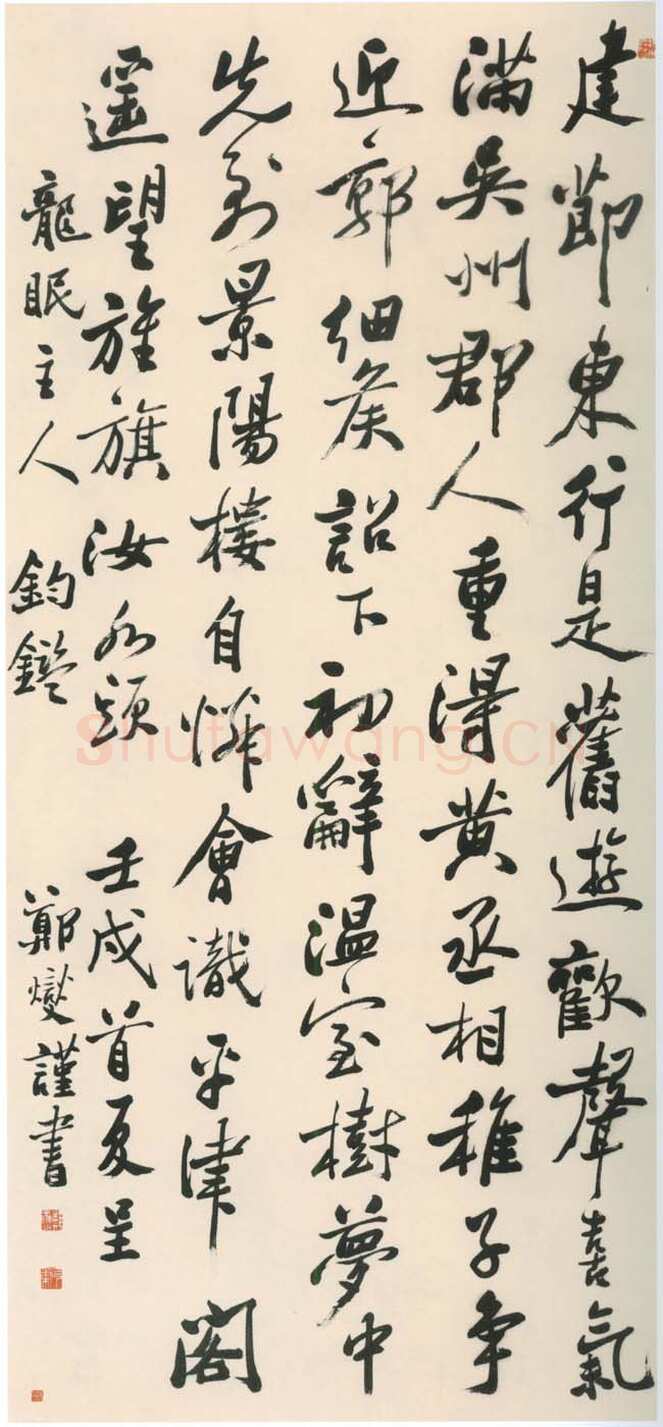 建節東行是舊遊歡聲喜氣
滿吳州郡人重得黃丞相稚子爭
迎郭細侯詔下初辭溫室樹夢中
先到景陽樓自憐會識平津閣
遙望旌旗汝水頭 壬戌首夏呈
龍眠主人 鈞鑑 鄭燮謹書
Shufawang.cn